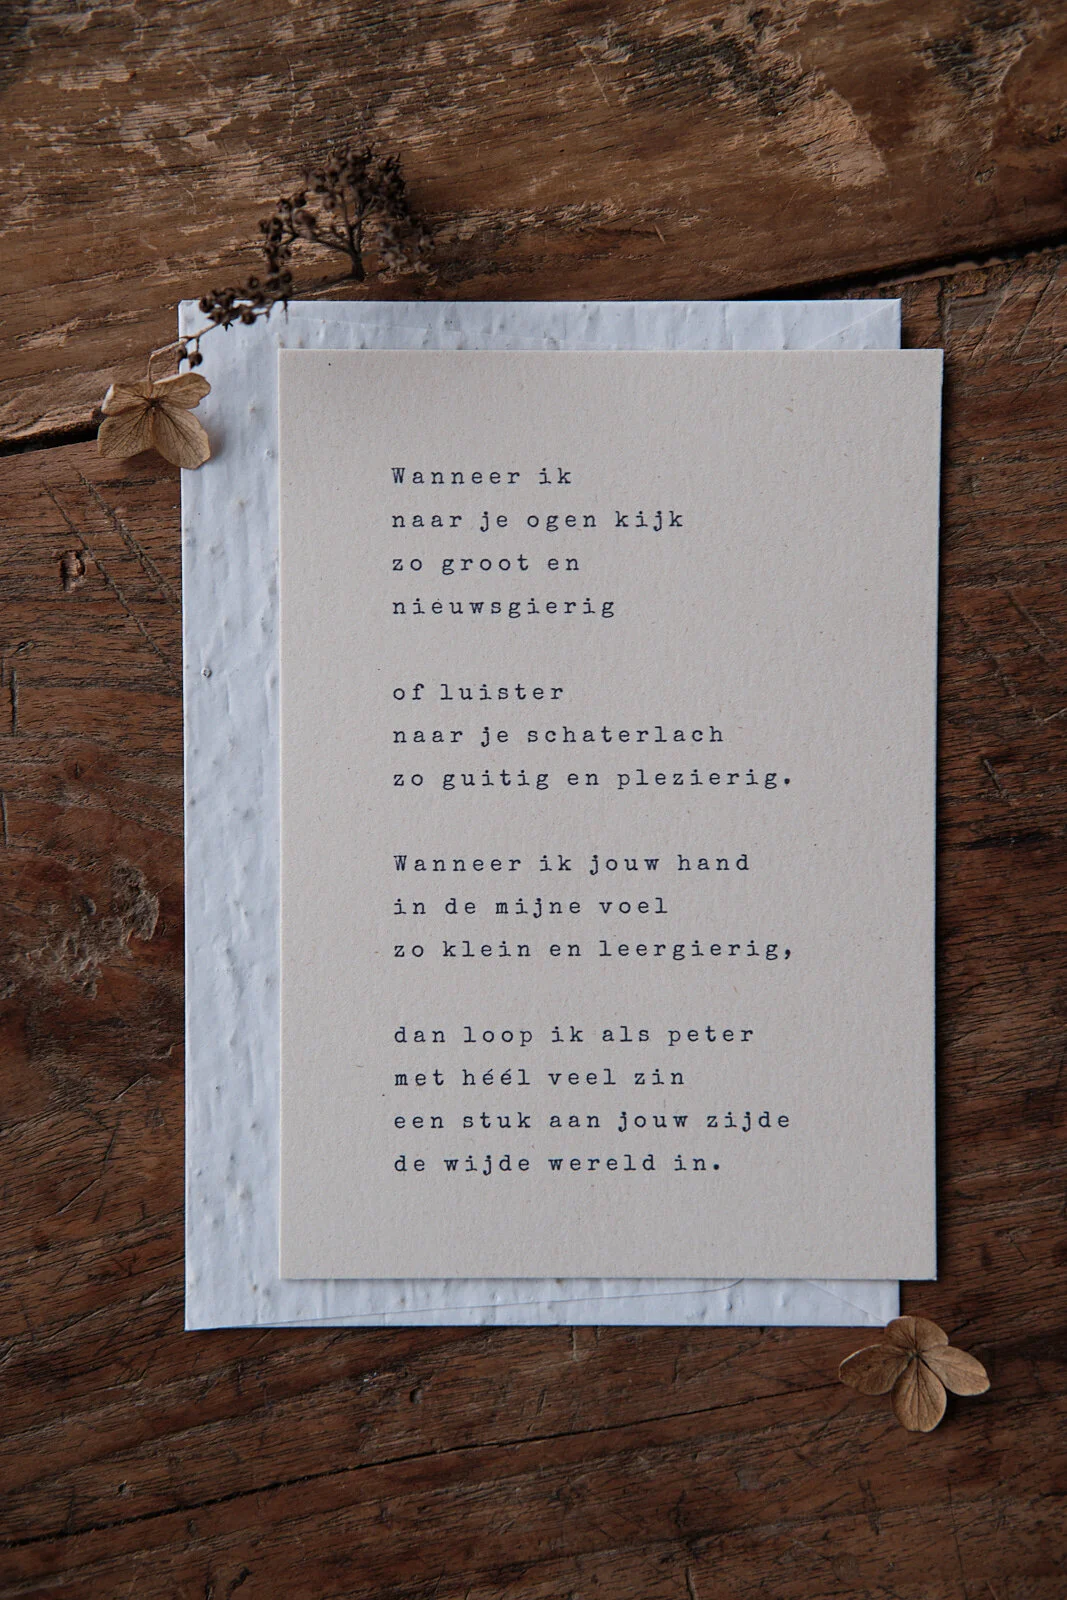 Wanneer ik
naar je ogen kijk
zo groot en
nieuwsgierig
of luister
naar je schaterlach
zo guitig en plezierig.
Wanneer ik jouw hand
in de mijne voel
zo klein en leergierig,
dan loop ik als peter
met héél veel zin
een stuk aan jouw zijde
de wijde wereld in.